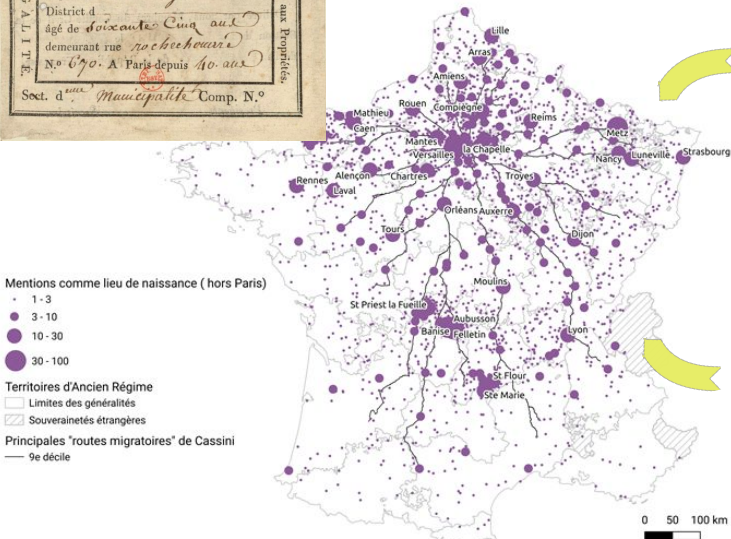 District d
âgé de soixante Cinq ans
demeurant rue rochechouard
N.º 670. A Paris depuis 40 ans
Sect. d' Municipalité Comp. N.º
GALITÉ,
aux Propriétés.
Lille
Arras
Amiens
Rouen
Compiègne
Mathieu
Caen
Reims
Metz
Mantes
la Chapelle
Versailles
Nancy
Luneville
Strasbourg
Rennes
Alençon
Chartres
Troyes
Laval
Orléans
Auxerre
Tours
Dijon
Moulins
St Priest la Fueille
Aubusson
Banise
Felletin
Lyon
St Flour
Ste Marie
Mentions comme lieu de naissance ( hors Paris)
1 - 3
3 - 10
10 - 30
30 - 100
Territoires d'Ancien Régime
Limites des généralités
Souverainetés étrangères
Principales "routes migratoires" de Cassini
9e décile
0 50 100 km